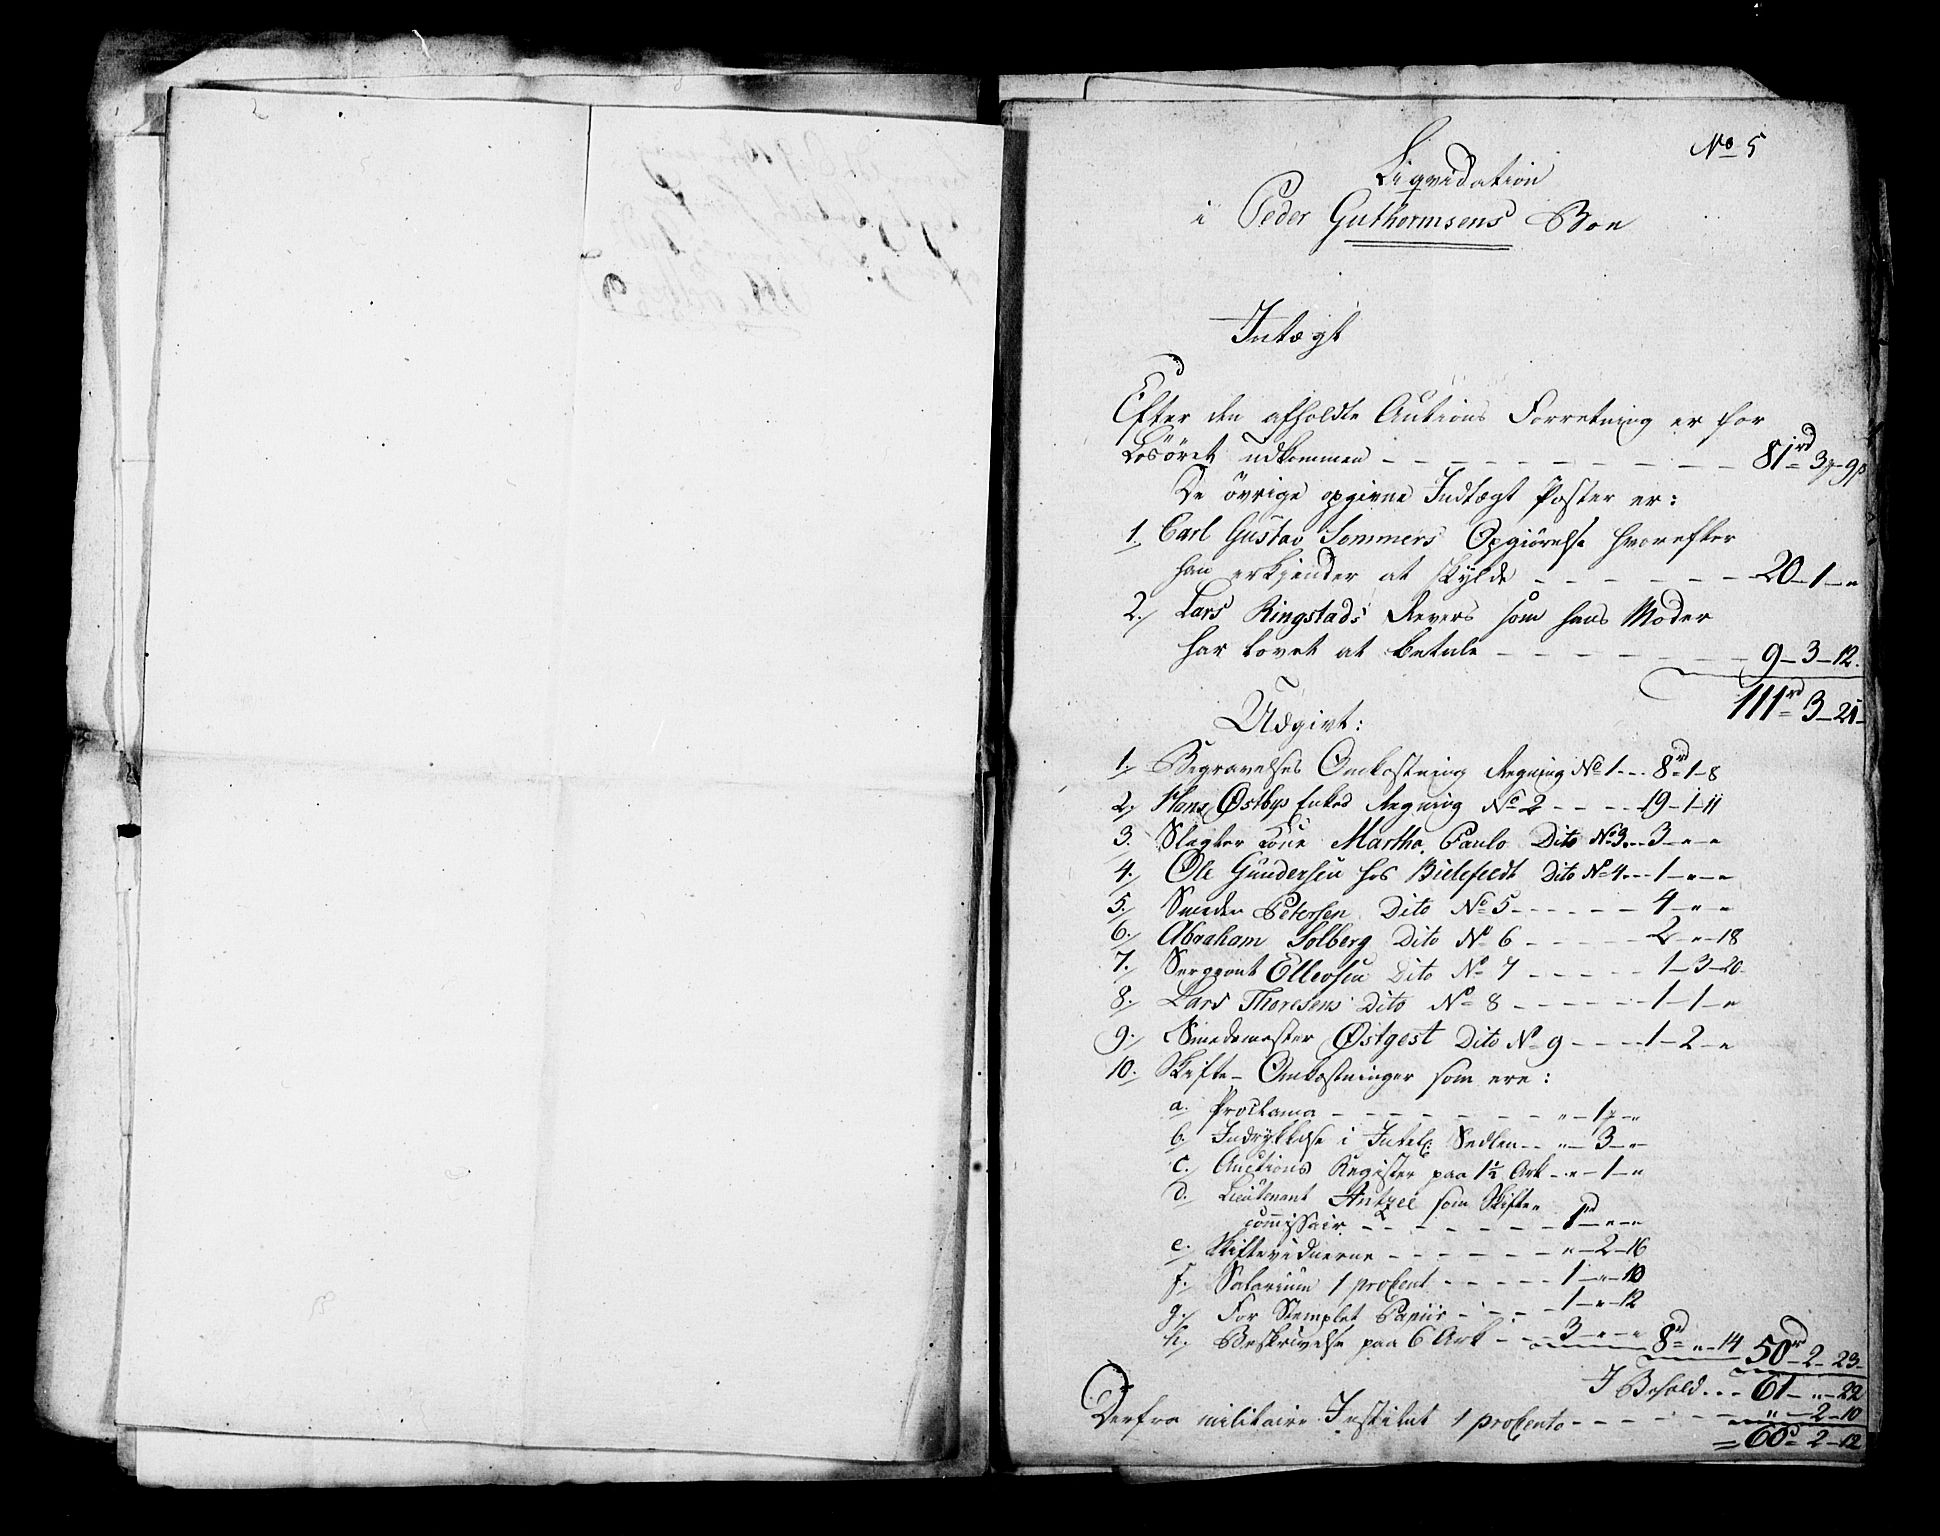 No 5
Liqvidation
i Peder Guthormsens Boe
Intægt
Efter den afholdte Auctions Forretning er for
Løsøret udkommen - - - 81rd 3 - 9
De øvrige opgivne Indtægt Poster er:
1. Carl Gustav Sommers Opgiørelse hvorefter
han erkjender at skylde - - - 20 - 1 - "
2. Lars Ringstads Revers som hans Moder
har lovet at betale - - - 9 - 3 - 12.
111rd 3 - 21
Udgivt:
1. Begravelses Omkostning Regning No 1 - - - 8rd 1 - 8
2. Hans Østbys Enkes Regning No 2 - - - 19 - 1 - 11
3. Slagter Kone Martha Paulo Dito No 3 - - 3 - " - "
4. Ole Gundersen hos Bielefeldt Dito No 4 - - 1 - " - "
5. Smeden Petersen Dito No 5 - - - 4 - " - "
6. Abraham Solberg Dito No 6 - - - 2 - " - 18
7. Sergeant Ellevsen Dito No 7 - - - 1 - 3 - 20
8. Lars Thoresens Dito No 8 - - - 1 - 1 - "
9. Smedemester Østgest Dito No 9 - - - 1 - 2 - "
10. Skifte-Omkostninger som ere:
a. Proclama - - - " - 1 - "
b. Indrykkelse i Intel: Sedlen - - " - 3 - "
c. Auctions Register paa 1½ Ark - " - 1 - "
d. Lieutenant Antzee som Skifte-
commissair - - - 1rd " - "
e. Skiftevidnerne - - - " - 2 - 16
f. Salarium 1 proCent - - - 1 - " - 10
g. For Stemplet Papiir - - - 1 - " - 12
h. Beskrivelse paa 6 Ark - - - 3 - " - " 8rd " - 14 50rd 2 - 23
I Behold - - - 61 - " - 22
Derfra militaire Institut 1 proCento - - - " - 2 - 10
= 60rd 2 - 12